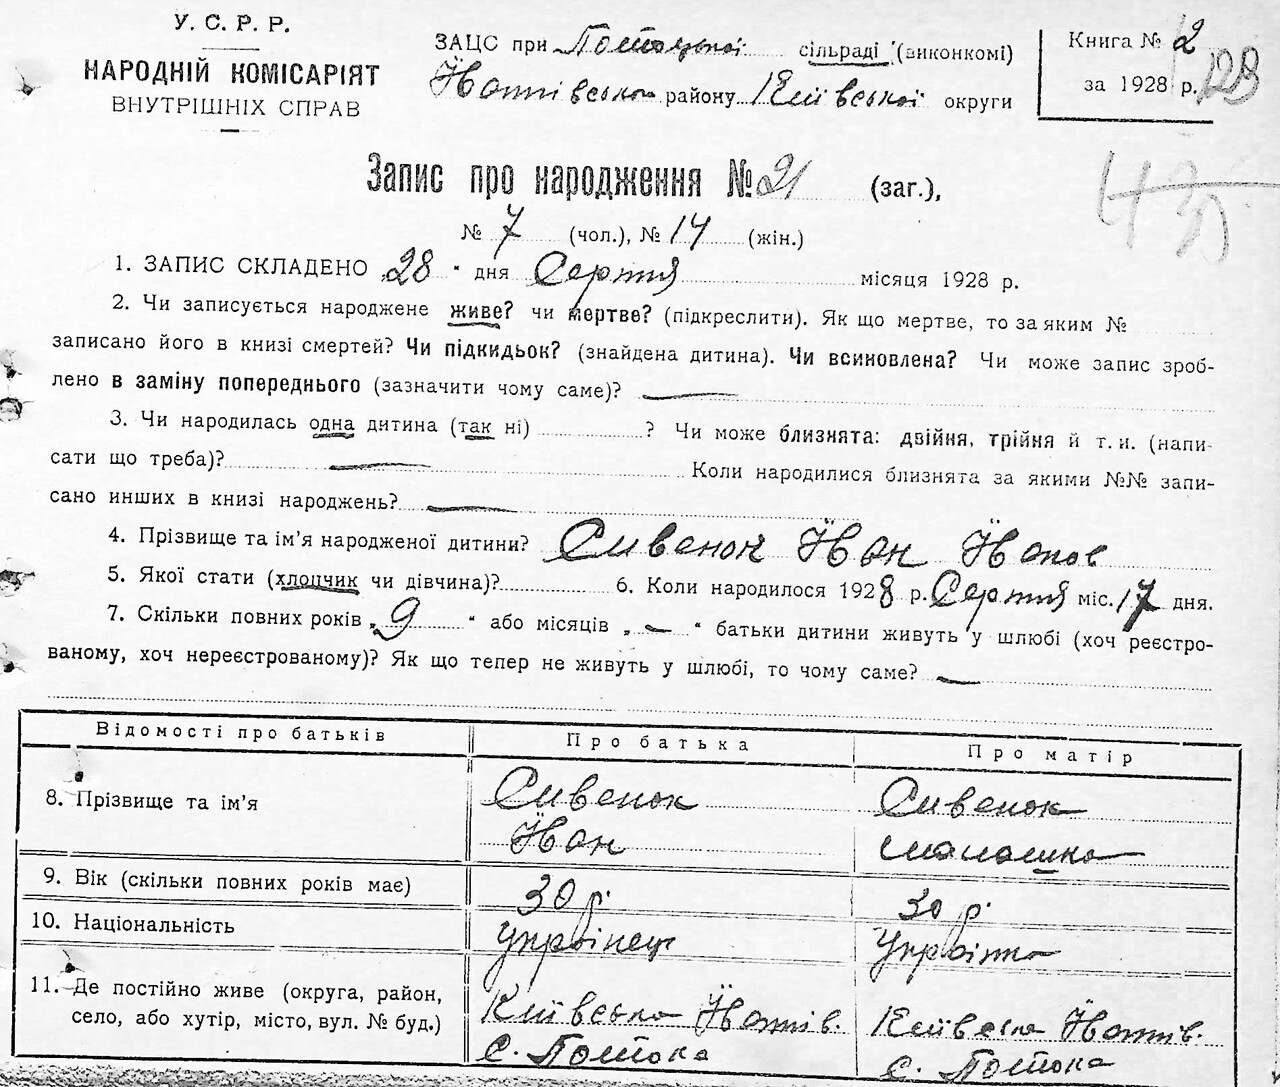 У. С. Р. Р.
НАРОДНІЙ КОМІСАРІЯТ
ВНУТРІШНІХ СПРАВ
ЗАЦС при Потоцької сільраді (виконкомі)
району Київської округи
Книга № 2
за 1928 р.
128
43
Запис про народження № 21 (заг.),
№ 7 (чол.), № 14 (жін.)
1. ЗАПИС СКЛАДЕНО „28" дня Серпня місяця 1928 р.
2. Чи записується народжене живе? чи мертве? (підкреслити). Як що мертве, то за яким №
записано його в книзі смертей? Чи підкидьок? (знайдена дитина). Чи всиновлена? Чи може запис зроб-
лено в заміну попереднього (зазначити чому саме)? —
3. Чи народилась одна дитина (так ні) ? Чи може близнята: двійня, трійня й т. и. (напи-
сати що треба)? — Коли народилися близнята за якими №№ запи-
сано инших в книзі народжень? —
4. Прізвище та ім'я народженої дитини? Сивенок Їван Їванов
5. Якої стати (хлопчик чи дівчина)? 6. Коли народилося 1928 р. Серпня міс. 17 дня.
7. Скільки повних років „9" або місяців „—" батьки дитини живуть у шлюбі (хоч реєстро-
ваному, хоч нереєстрованому)? Як що тепер не живуть у шлюбі, то чому саме? —
Відомості про батьків Про батька Про матір
8. Прізвище та ім'я Сивенок Сивенок
Їван
9. Вік (скільки повних років має) 30 р. 30 р.
10. Національність Українець Українка
11. Де постійно живе (округа, район, Київська Київська
село, або хутір, місто, вул. № буд.) с. Потока с. Потока